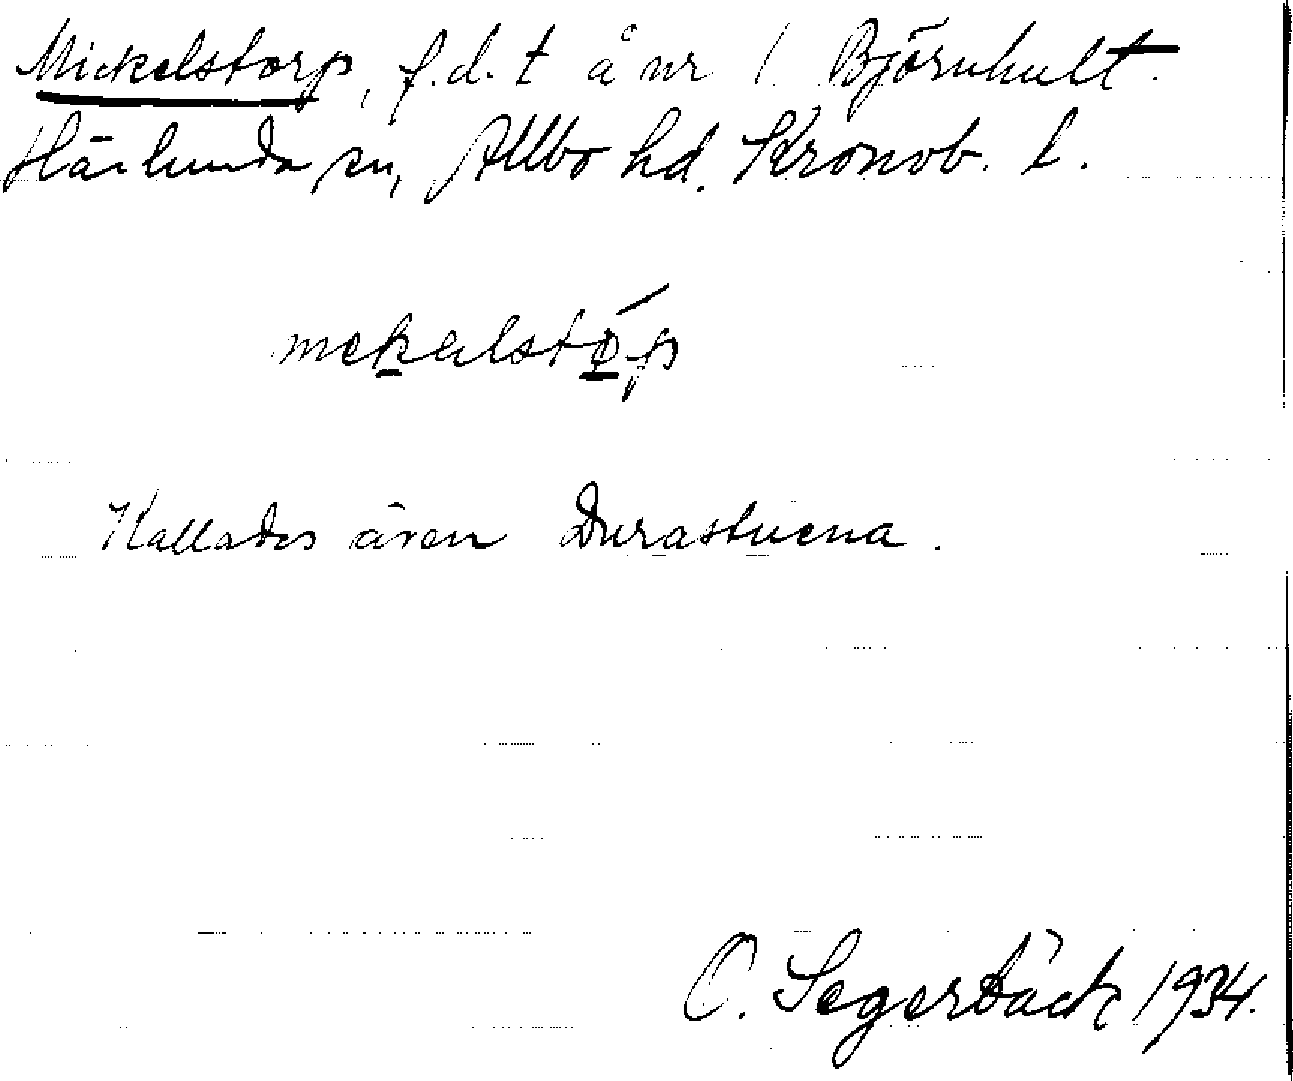 Mickelstorp, f.d. t å nr 1 Björnhult.
Härlunda sn, Allbo hd. Kronob. L.
mekalstóp
Kallades även Durastuena.
O. Segerbäck 1934.